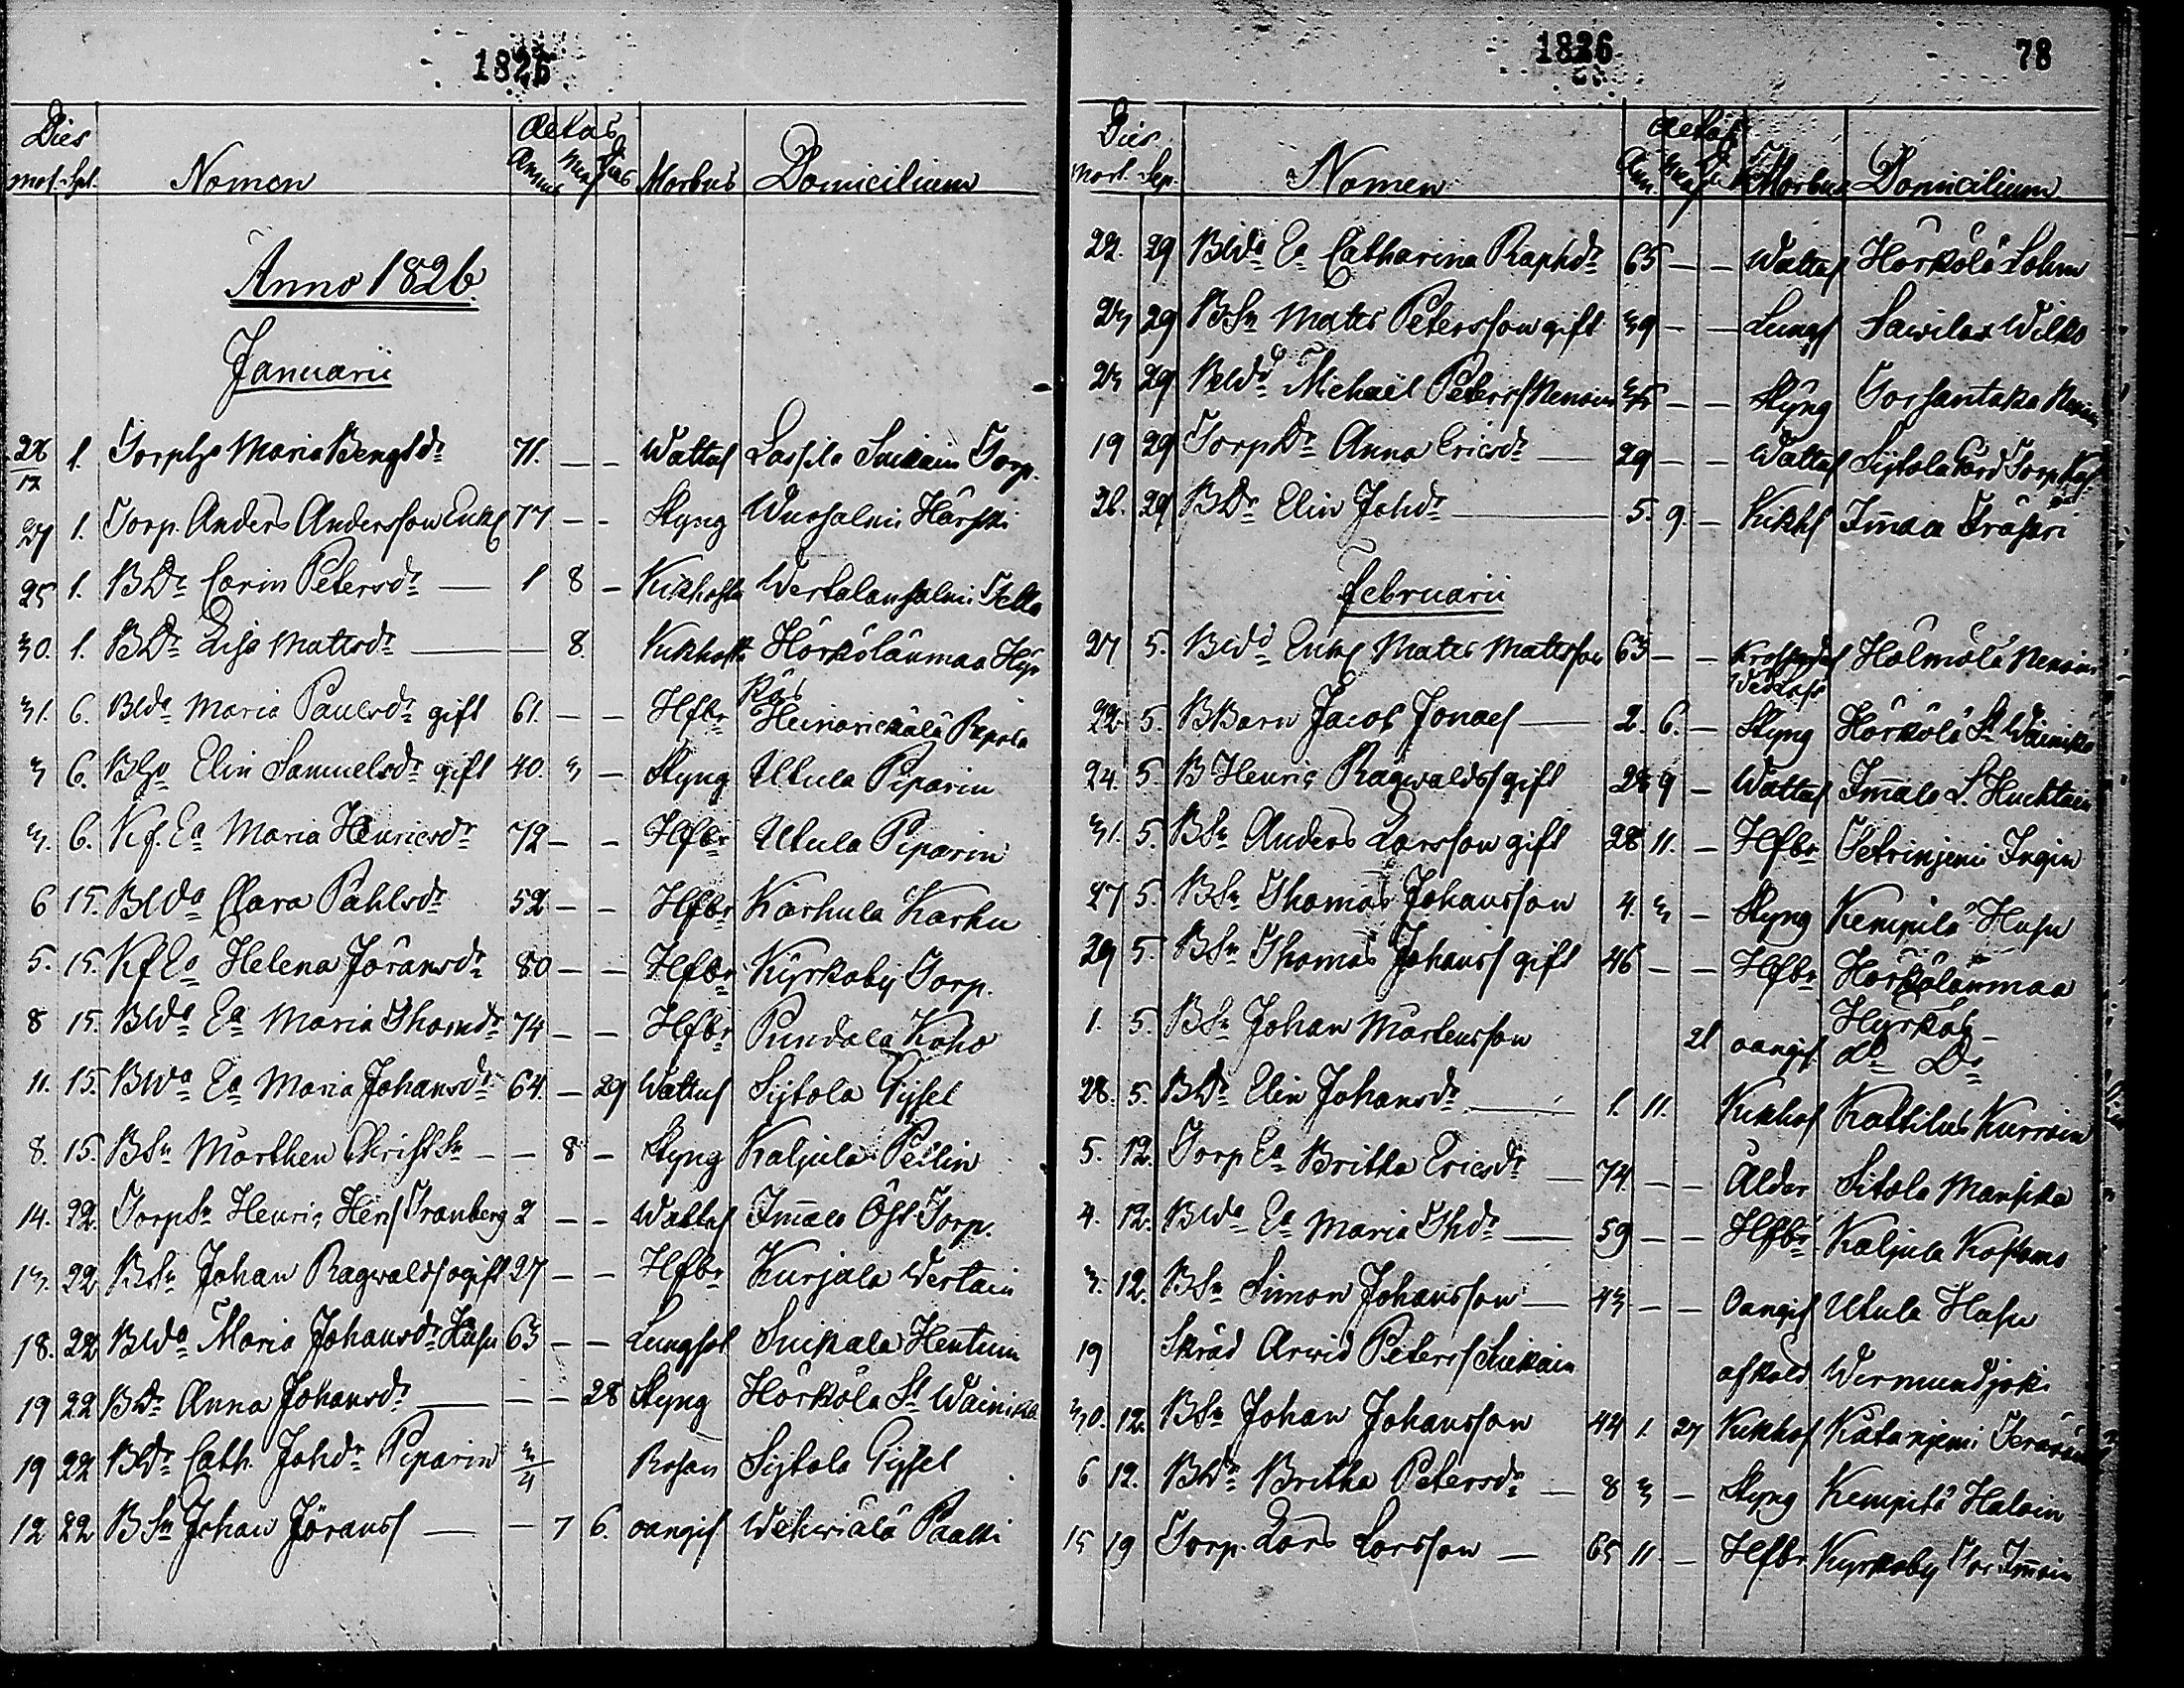 1826
Dies Aetas
Mort. Sepl. Nomen Annus Mens Dies Morbus Domicilium
Anno 1826
Januarii
28/12 1. Torphu Maria Bengtsdr 71. — — Wattus Lassila Suikain Torp.
27 1. Torp. Anders Andersson Enkl 77 — — Styng Wuosalmi Härski
25 1. BDr Carin Petersdr — 1 8 — Kikhosta Wertalansalmi Tella
30. 1. BDr Lisa Mattsdr — — 8. Kikhosta Hörkölänmaa Hyr
käs
31. 6. Blda Maria Paulsdr gift 61. — — Hfbr Heinarickälä Repola
3 6. BHu Elin Samuelsdr gift 40. 3 — Styng Utula Piparin
3. 6. Kf. Ea Maria Henricsdr 72 — — Hfbr Utula Piparin
6 15. Blda Clara Påhlsdr 52 — — Hfbr Karhula Karhu
5. 15. Kf Ea Helena Jöransdr 80 — — Hfbr Kyrkoby Torp.
8 15. Blda Ea Maria Thomdr 74 — — Hfbr Pundala Koho
11. 15. Blda Ea Maria Johansdr 64. — 29 Wattus Sijtola Gijsel
8. 15. BSn Mårthen ChristSn — — 8 — Styng Kaljula Peilin
14. 22. TorpSn Henric Henr Tranberg 2 — — Wattus Immala Öst Torp.
13. 22 BSn Johan Ragwalds ogift 27 — — Hfbr Kurjala Wertain
18. 22 Blda Maria Johansdr Husu 63 — — Lungsot Suikala Hentuin
19 22 BDr Anna Johansdr — — — 28 Styng Hörkölä St Wainika
19 22 BldDr Cath. Johdr Piparin 3/4 Rosen Sijtola Gijsel
12 22 BSn Johan Jöranss — — 7 6. oangif Wehwiälä Paatti
1826 78
Dies Aetas
Mort. Sep. Nomen Ann. Mens Di Morbus Domicilium
22. 29 Blda Ea Catharina Raphdr 65 — — Wattus Hörkölä Lohm
23 29 BSn Mats Petersson gift 39 — — Lungs Sawilax Wilko
23 29 Bldd Michaël Peterss Nenoin 35 — — Styng Torsantaka Nenoin
19 29 TorpDr Anna Ericsdr — 29 — — Wattus Sijtola
26. 29 BDr Elin Johdr — 5. 9. — Kikhs Immaa Träskri
Februarii
27 5. Bldd Enkl Mats Mattsson 63 — — Hölmölä Nenoin
22 5. BBarn Jacob Jonaes — 2. 6. — Styng Hörkölä St Wäinikä
24. 5. B Henric Ragwaldss gift 28 9 — Wattus Immala L. Huchtain
31. 5. BSn Anders Larsson gift 28 11. — Hfbr Tetrinjemi Ingin
27 5. BSn Thomas Johansson 4. 3 — Styng Kempilä Husu
29 5. BSn Thomas Johanss gift 46 — — Hfbr Hörkölänmaa
Hyrkäs
1. 5. BSn Johan Mårtensson 21 oangif do Do
28. 5. BDr Elin Johansdr — 1. 11. Kikhos Kattilus Kurroin
5. 12. Torp Ea Britha Ericsdr — 74 — — Ålder Sitola Mansika
4. 12. Blda Ea Maria Thdr — 59 — — Hfbr Kaljula Kostamo
3. 12. BSn Simon Johansson — 43 — — Oangif Utula Husu
19 Skräd Arwid Peterss Suikain afkald Wermundjoki
30. 12. BSn Johan Johansson 44 1. 27 Kikhos Kätänjemi
6 12. BDr Britha Petersdr — 8 3 — Styng Kempilä Haloin
15 19 Torp. Lars Larsson — 65 11 — Hfbr Kyrkoby